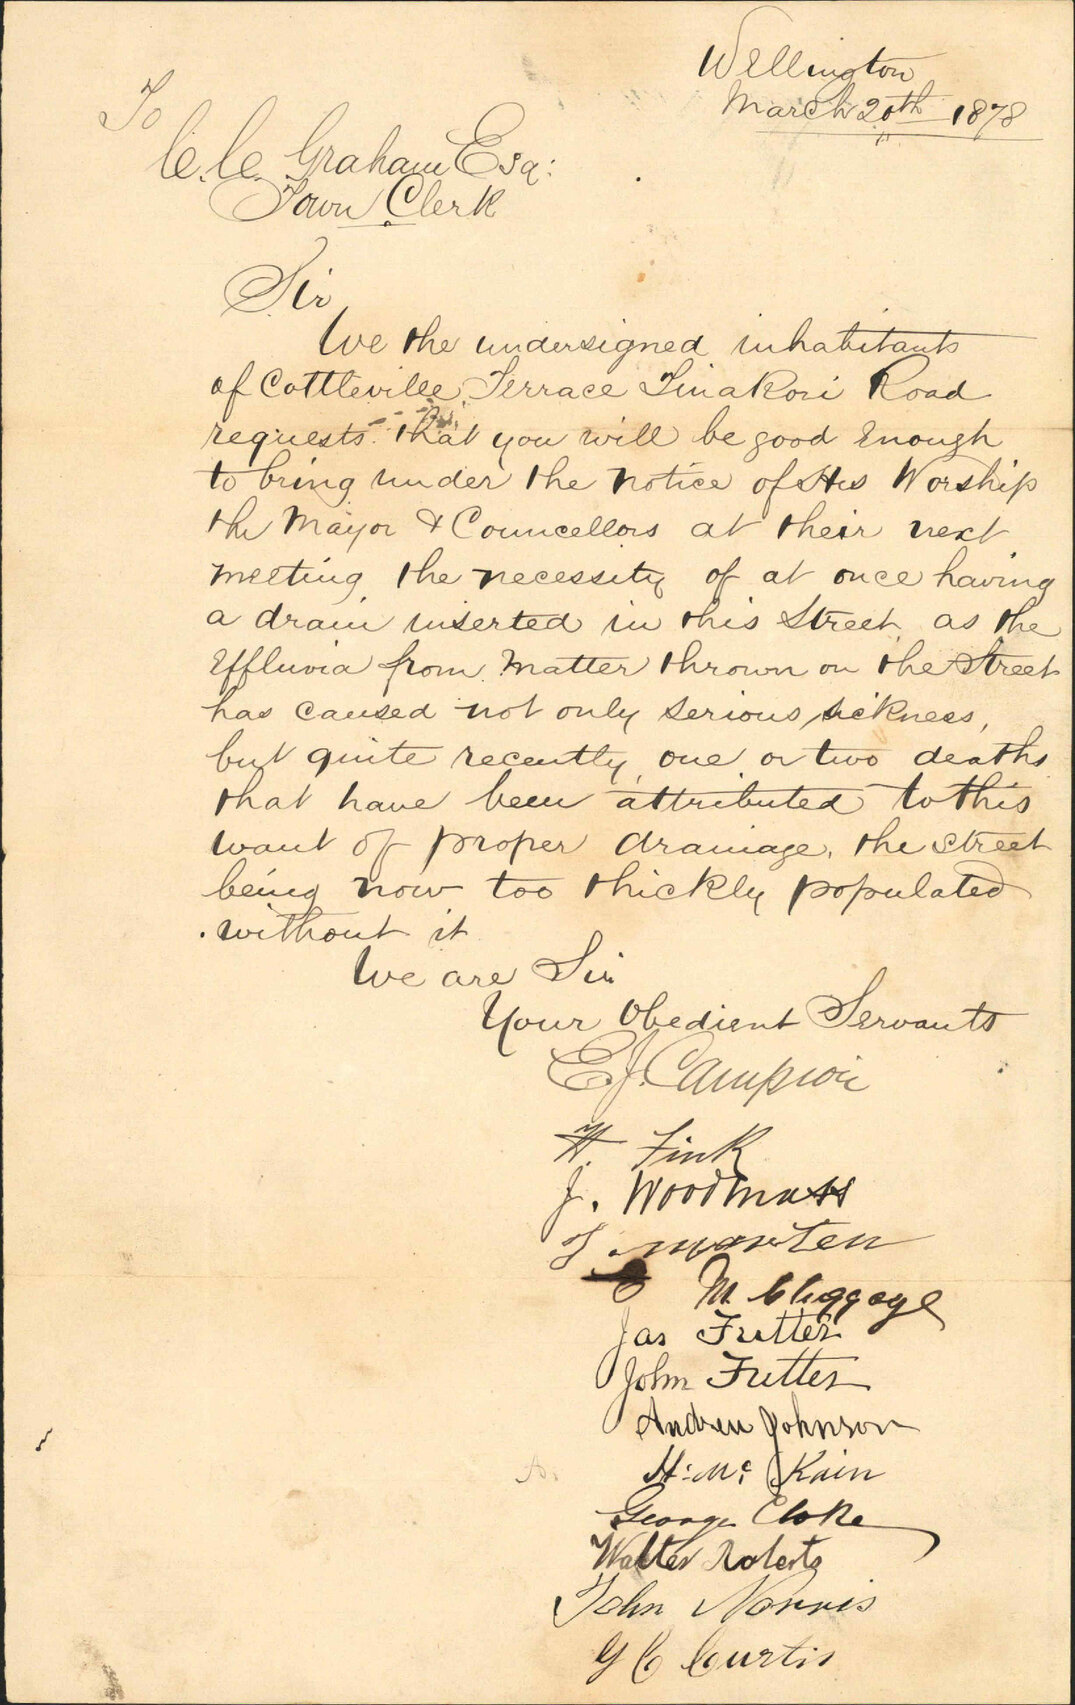 Wellington
March 20th 1878
To
C. C. Graham Esq:
Town Clerk
Sir
We the undersigned inhabitants
of Cottleville Terrace Tinakori Road
requests that you will be good Enough
to bring under the notice of His Worship
the Mayor & Councellors at their next
meeting the necessity of at once having
a drain inserted in this Street as the
Effluvia from Matter thrown on the Street
has caused not only serious sickness,
but quite recently, one or two deaths
that have been attributed to this
want of proper drainage, the street
being now too thickly populated
without it
We are Sir
Your Obedient Servants
E. J. Campion
H. Fink
J. Woodmass
T. Marten
M. Cluggage
Jas Futter
John Futter
Andrew Johnson
H. Mc Kain
George Cloke
Walter Roberts
John Norris
G C Curtis